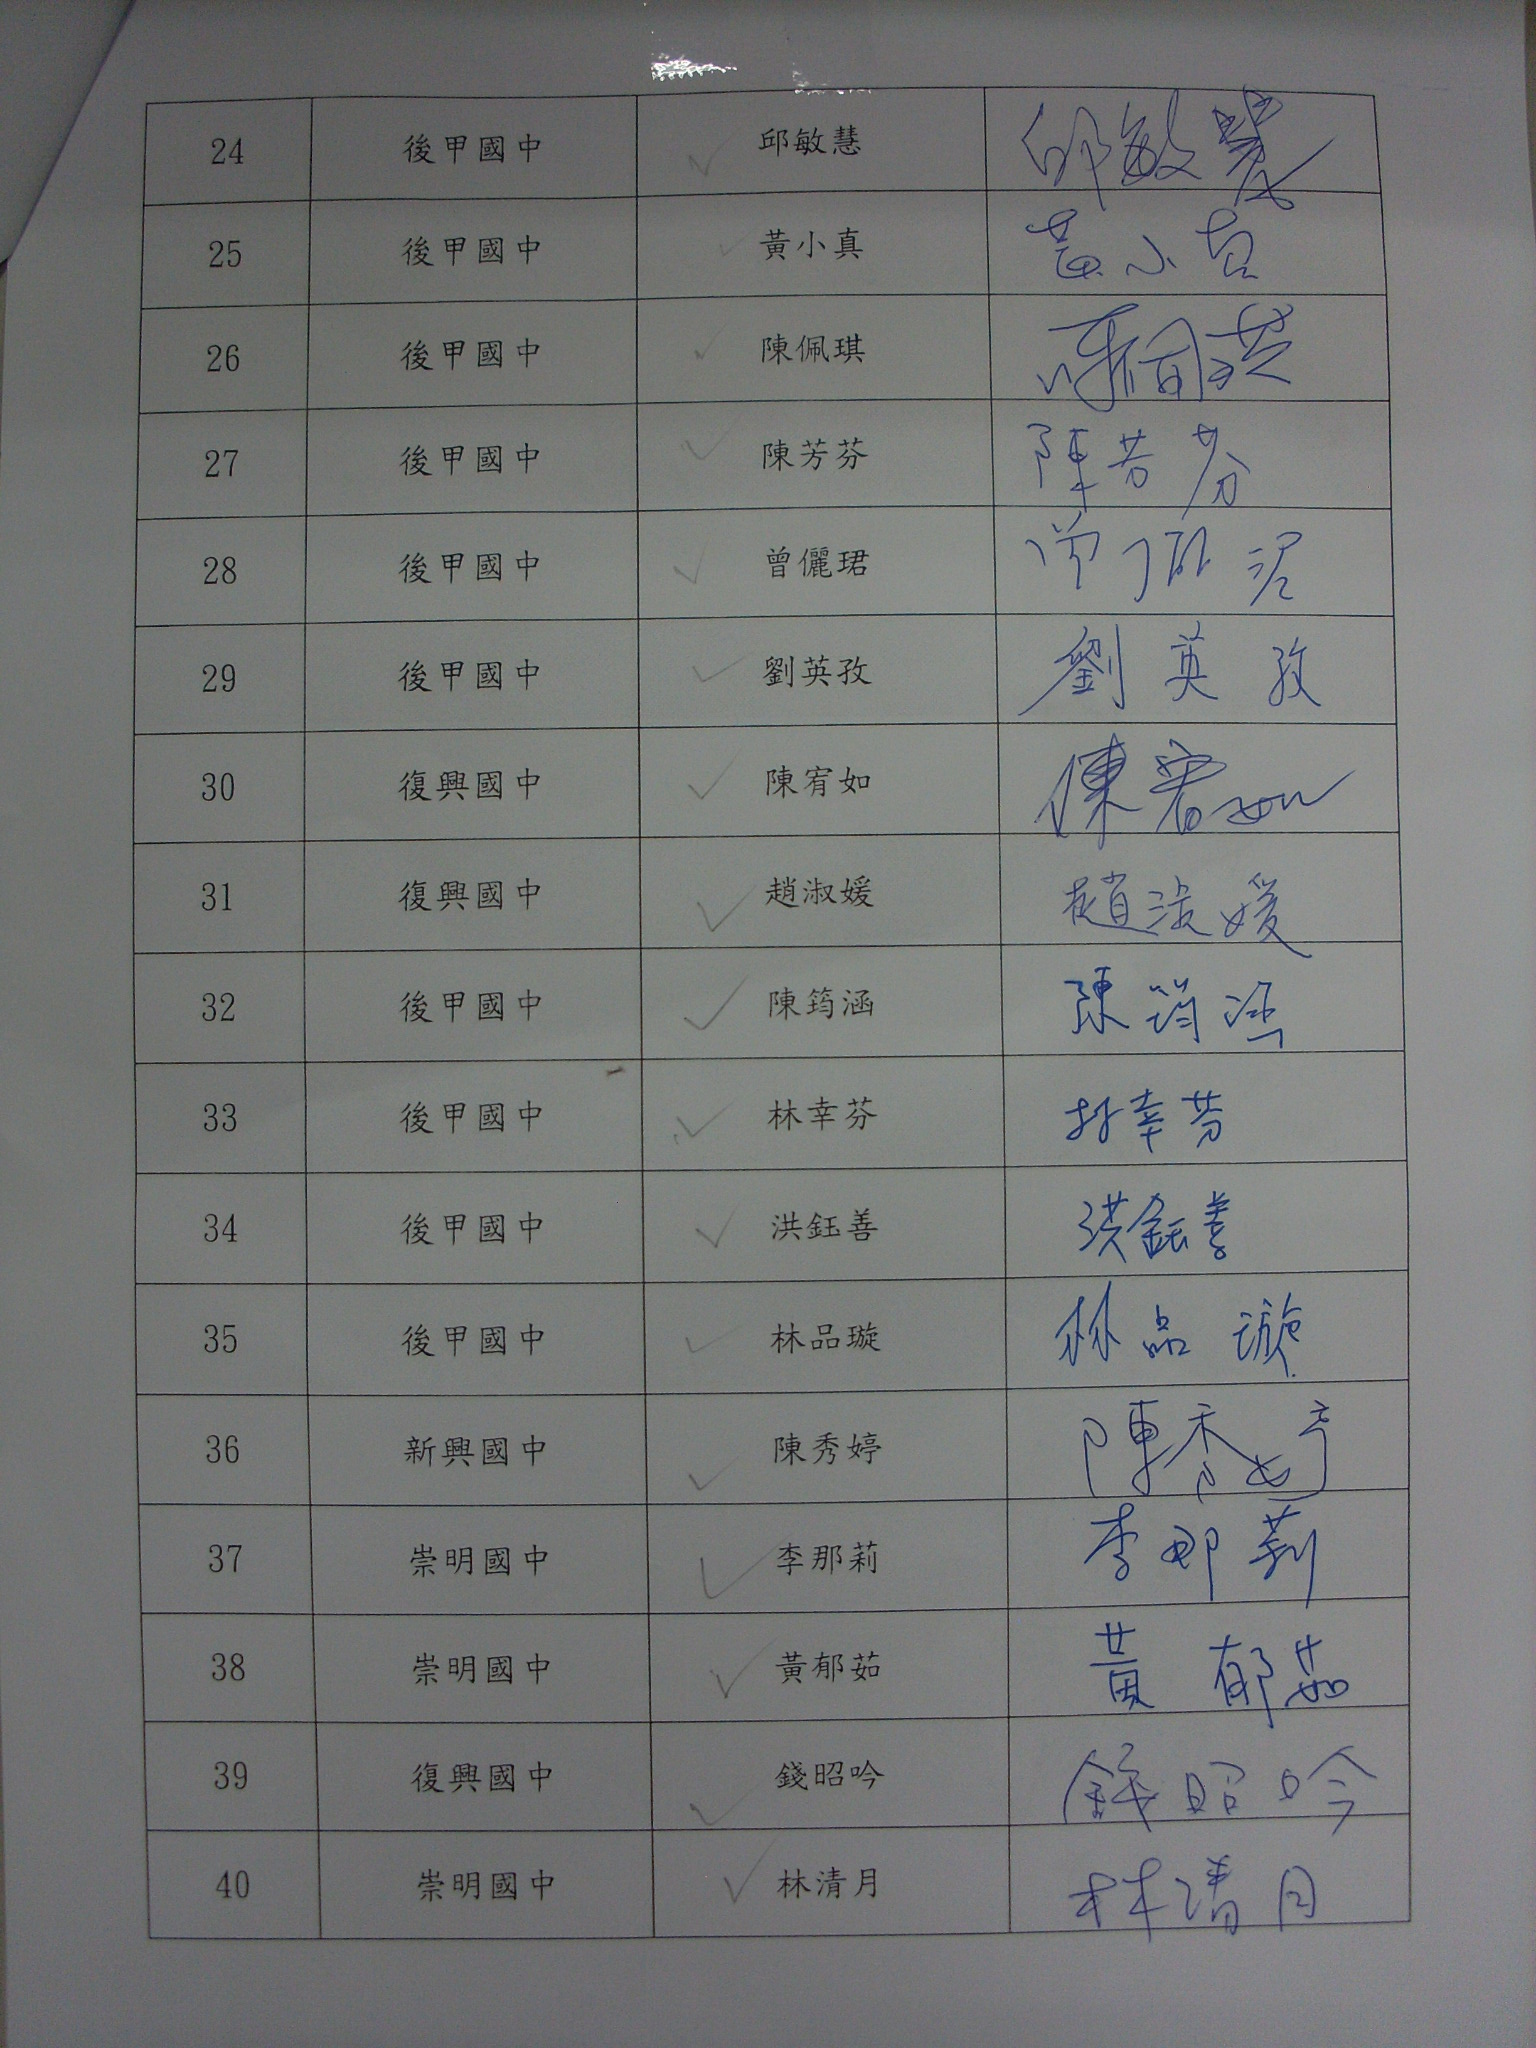 24 後甲國中 邱敏慧 邱敏慧
25 後甲國中 黃小真 黃小真
26 後甲國中 陳佩琪 陳佩琪
27 後甲國中 陳芳芬 陳芳芬
28 後甲國中 曾儷珺 曾儷珺
29 後甲國中 劉英孜 劉英孜
30 復興國中 陳宥如 陳宥如
31 復興國中 趙淑媛 趙淑媛
32 後甲國中 陳筠涵 陳筠涵
33 後甲國中 林幸芬 林幸芬
34 後甲國中 洪鈺善 洪鈺善
35 後甲國中 林品璇 林品璇
36 新興國中 陳秀婷 陳秀婷
37 崇明國中 李那莉 李那莉
38 崇明國中 黃郁茹 黃郁茹
39 復興國中 錢昭吟 錢昭吟
40 崇明國中 林清月 林清月